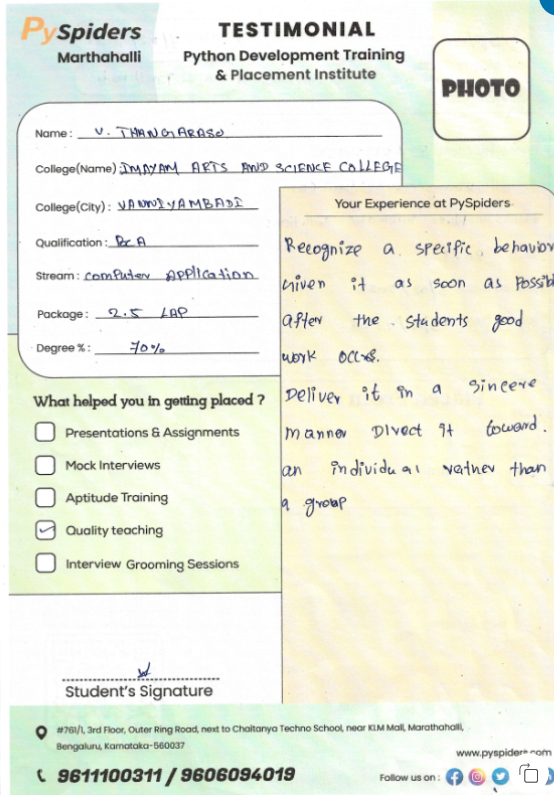 PySpiders
Marthahalli
TESTIMONIAL
Python Development Training
& Placement Institute
PHOTO
Name : V. THANGARASU
College(Name) IMAYAM ARTS AND SCIENCE COLLEGE
College(City) : VANNIYAMBADI
Qualification : BCA
Stream : computer Application
Package : 2.5 LAP
Degree % : 70%
What helped you in getting placed ?
Presentations & Assignments
Mock Interviews
Aptitude Training
Quality teaching
Interview Grooming Sessions
Your Experience at PySpiders
Recognize a specific behavior
Given it as soon as Possib
after the students good
work occrs.
Deliver it in a sincere
manner Direct it toward.
an individual rather than
a group
Student's Signature
#761/1, 3rd Floor, Outer Ring Road, next to Chaitanya Techno School, near KLM Mall, Marathahalli,
Bengaluru, Karnataka-560037
9611100311 / 9606094019
www.pyspiders.com
Follow us on :